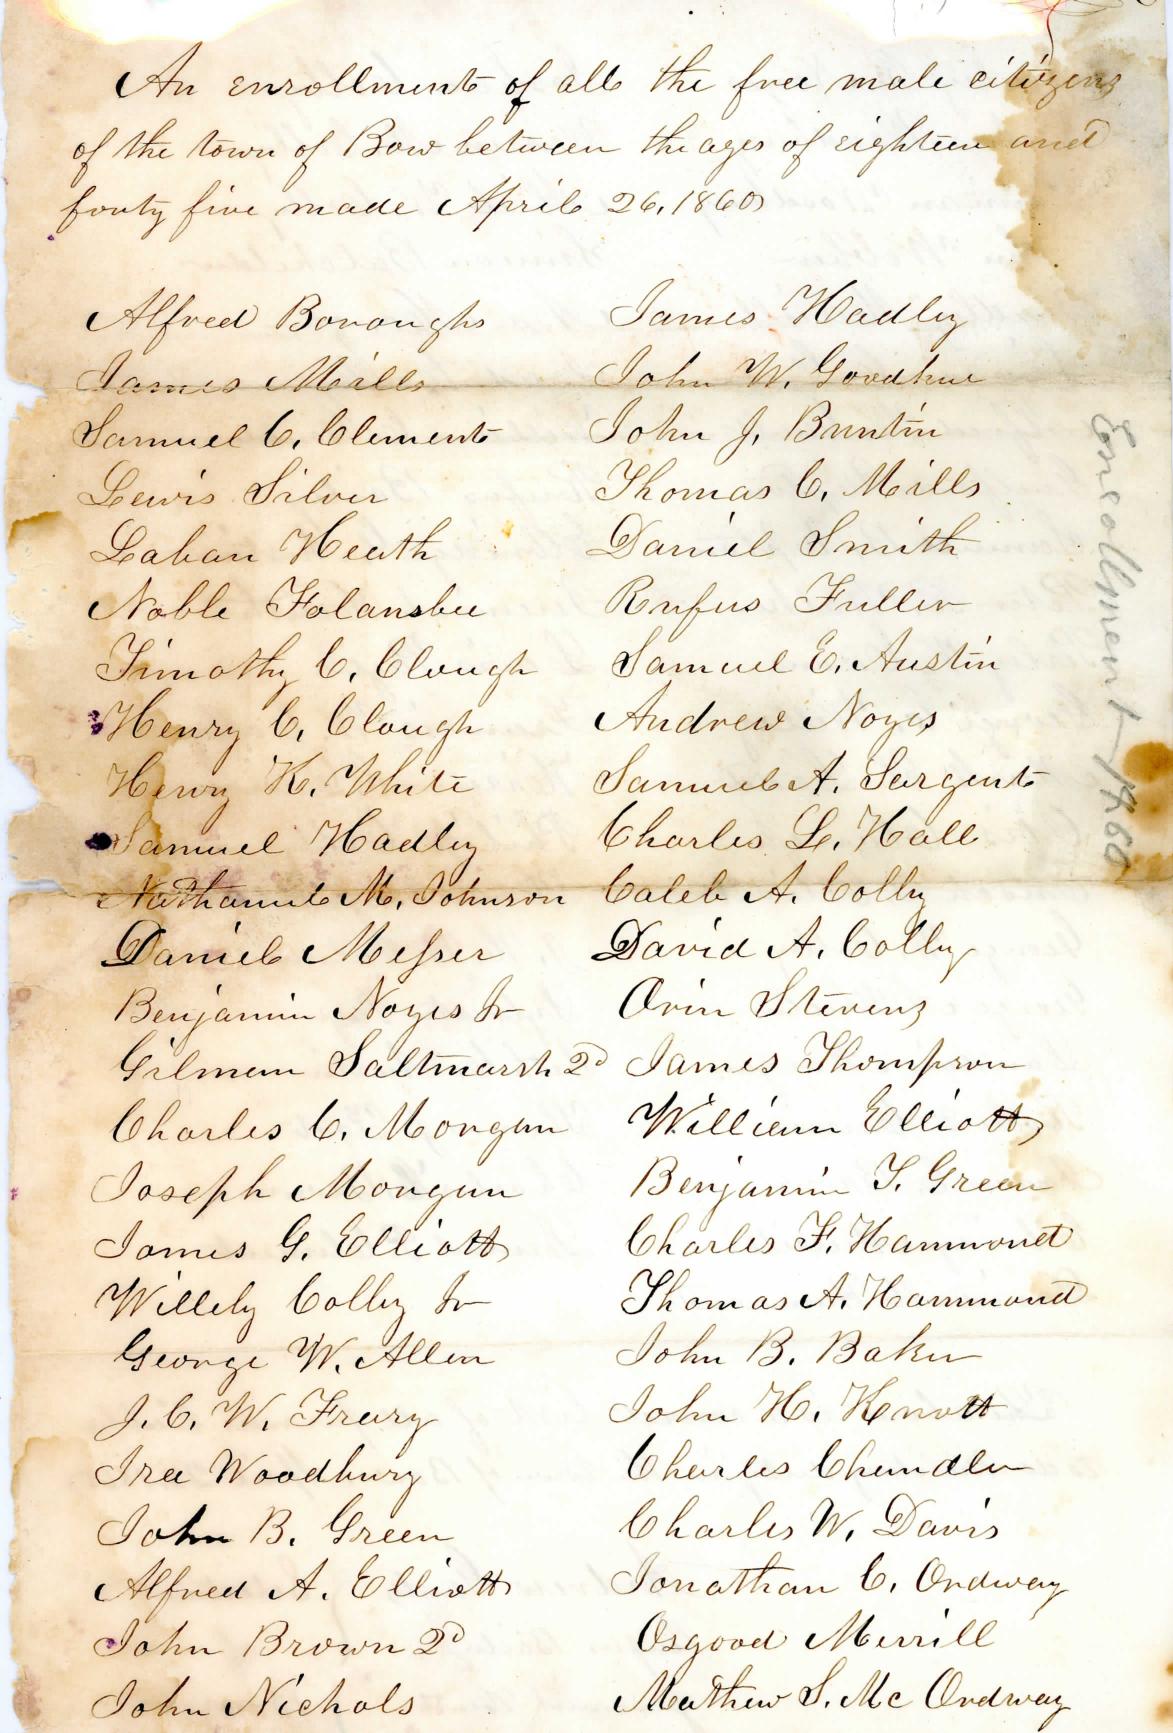 An enrollment of all the free male citizens
of the town of Bow between the ages of eighteen and
forty five made April 26, 1860
Alfred Boroughs
James Mills
Samuel C. Clement
Lewis Silver
Laban Heath
Noble Folansbee
Timothy C. Clough
Henry C. Clough
Henry K. White
Samuel Hadley
Nathaniel M. Johnson
Daniel Messer
Benjamin Noyes Jr
Gilman Saltmarsh 2d
Charles C. Morgan
Joseph Morgan
James G. Elliott
Willeby Colby Jr
George W. Allen
J. C. W. Frary
Ira Woodbury
John B. Green
Alfred A. Elliott
John Brown 2d
John Nichols
James Hadley
John W. Goodhue
John J. Buntin
Thomas C. Mills
Daniel Smith
Rufus Fuller
Samuel E. Austin
Andrew Noyes
Samuel A. Sargent
Charles L. Hall
Caleb A. Colby
David A. Colby
Orin Stevens
James Thompson
William Elliott
Benjamin T. Green
Charles F. Hammond
Thomas A. Hammond
John B. Baker
John H. Knott
Charles Chandler
Charles W. Davis
Jonathan C. Ordway
Osgood Merrill
Mathew S. Mc Ordway
Enrollment 1860